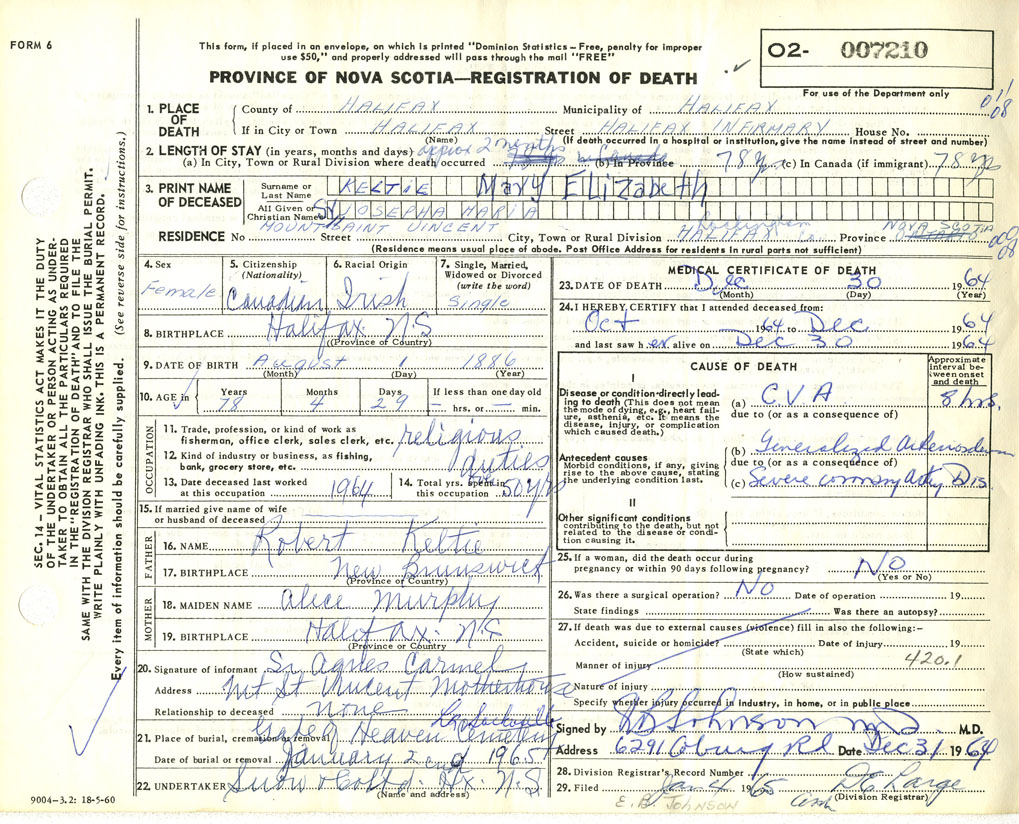 FORM 6
This form, if placed in an envelope, on which is printed "Dominion Statistics – Free, penalty for improper
use $50," and properly addressed will pass through the mail "FREE"
PROVINCE OF NOVA SCOTIA—REGISTRATION OF DEATH
O2- 007210
For use of the Department only
SEC. 14 – VITAL STATISTICS ACT MAKES IT THE DUTY
OF THE UNDERTAKER OR PERSON ACTING AS UNDER-
TAKER TO OBTAIN ALL THE PARTICULARS REQUIRED
IN THE "REGISTRATION OF DEATH" AND TO FILE THE
SAME WITH THE DIVISION REGISTRAR WHO SHALL ISSUE THE BURIAL PERMIT.
WRITE PLAINLY WITH UNFADING INK. THIS IS A PERMANENT RECORD.
Every item of information should be carefully supplied. (See reverse side for instructions.)
1. PLACE OF DEATH
County of HALIFAX Municipality of HALIFAX
If in City or Town HALIFAX Street HALIFAX INFIRMARY House No.
(Name) (If death occurred in a hospital or institution, give the name instead of street and number)
2. LENGTH OF STAY (in years, months and days) approx 2 months
(a) In City, Town or Rural Division where death occurred (b) In Province 78 yrs (c) In Canada (if immigrant) 78 yrs
3. PRINT NAME OF DECEASED
Surname or Last Name KELTIE Mary ELizabeth
All Given or Christian Names Sr JOSEPHA MARIA
MOUNT SAINT VINCENT
RESIDENCE No Street City, Town or Rural Division HALIFAX Province NOVA SCOTIA
(Residence means usual place of abode. Post Office Address for residents in rural parts not sufficient)
4. Sex Female
5. Citizenship (Nationality) Canadian
6. Racial Origin Irish
7. Single, Married, Widowed or Divorced (write the word) Single
8. BIRTHPLACE Halifax N.S
(Province of Country)
9. DATE OF BIRTH August 1 1886
(Month) (Day) (Year)
10. AGE in Years 78 Months 4 Days 29 If less than one day old — hrs. or — min.
OCCUPATION
11. Trade, profession, or kind of work as
fisherman, office clerk, sales clerk, etc. religious
12. Kind of industry or business, as fishing,
bank, grocery store, etc. duties
13. Date deceased last worked at this occupation 1964
14. Total yrs. spent in this occupation 50 yrs
15. If married give name of wife
or husband of deceased
FATHER
16. NAME Robert Keltie
17. BIRTHPLACE New Brunswick
(Province of Country)
MOTHER
18. MAIDEN NAME Alice Murphy
19. BIRTHPLACE Halifax N.S
(Province or Country)
20. Signature of informant Sr Agnes Carmel
Address Mt St Vincent Motherhouse
Relationship to deceased None
Lr Sackville
21. Place of burial, cremation or removal Gate of Heaven Cemetery
Date of burial or removal January 2 1965
22. UNDERTAKER Snow & Co Ltd. Hx. N.S.
(Name and address)
9004–3.2: 18-5-60
MEDICAL CERTIFICATE OF DEATH
23. DATE OF DEATH Dec 30 1964
(Month) (Day) (Year)
24. I HEREBY CERTIFY that I attended deceased from:
Oct 1964 to Dec 1964
and last saw her alive on Dec 30 1964
CAUSE OF DEATH
Approximate interval between onset and death
I
Disease or condition directly leading to death (This does not mean the mode of dying, e.g., heart failure, asthenia, etc. It means the disease, injury, or complication which caused death.)
(a) C.V.A 8 hrs.
due to (or as a consequence of)
Antecedent causes
Morbid conditions, if any, giving rise to the above cause, stating the underlying condition last.
(b) Generalized
due to (or as a consequence of)
(c) Severe coronary Arty Dis
II
Other significant conditions
contributing to the death, but not
related to the disease or condition
causing it.
25. If a woman, did the death occur during
pregnancy or within 90 days following pregnancy? NO
(Yes or No)
26. Was there a surgical operation? NO Date of operation 19
State findings Was there an autopsy?
27. If death was due to external causes (violence) fill in also the following:-
Accident, suicide or homicide? Date of injury 19
(State which) 420.1
Manner of injury
(How sustained)
Nature of injury
Specify whether injury occurred in industry, in home, or in public place
Signed by E B Johnson MD M.D.
Address 6291 Coburg Rd Date Dec 31 1964
28. Division Registrar's Record Number
29. Filed Jan 4 1965 DC Large
(Division Registrar)
E. B. JOHNSON